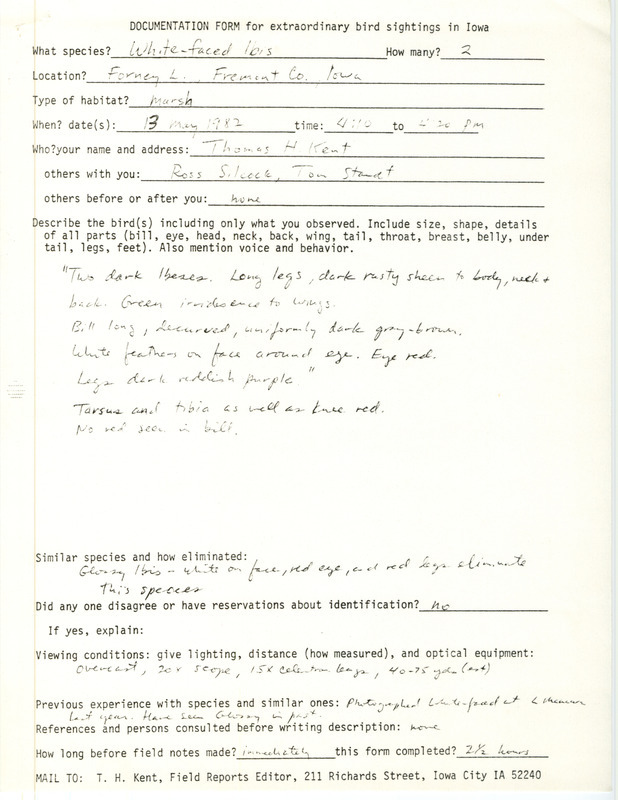 DOCUMENTATION FORM for extraordinary bird sightings in Iowa
What species? White-faced Ibis How many? 2
Location? Forney L., Fremont Co. Iowa
Type of habitat? marsh
When? date(s): 13 May 1982 time: 4:10 to 4:20 pm
Who?your name and address: Thomas H Kent
others with you: Ross Silcock, Tom Staudt
others before or after you: none
Describe the bird(s) including only what you observed. Include size, shape, details
of all parts (bill, eye, head, neck, back, wing, tail, throat, breast, belly, under
tail, legs, feet). Also mention voice and behavior.
"Two dark Ibeses. Long legs, dark rusty sheen to body, neck +
back. Green irridescence to wings.
Bill long, decurved, uniformly dark gray-brown.
White feathers on face around eye. Eye red.
Legs dark reddish purple"
Tarsus and tibia as well as knee red.
No red seen in bill.
Similar species and how eliminated:
Glossy Ibis - white on face, red eye, and red legs eliminate
this species
Did any one disagree or have reservations about identification? no
If yes, explain:
Viewing conditions: give lighting, distance (how measured), and optical equipment:
Overcast, 20x scope, 15x Celestron, 40-75 yds (est)
Previous experience with species and similar ones: Photographed White-faced at L
last year. Have seen Glossy in past.
References and persons consulted before writing description: none
How long before field notes made? immediately this form completed? 2½ hours
MAIL TO: T. H. Kent, Field Reports Editor, 211 Richards Street, Iowa City IA 52240